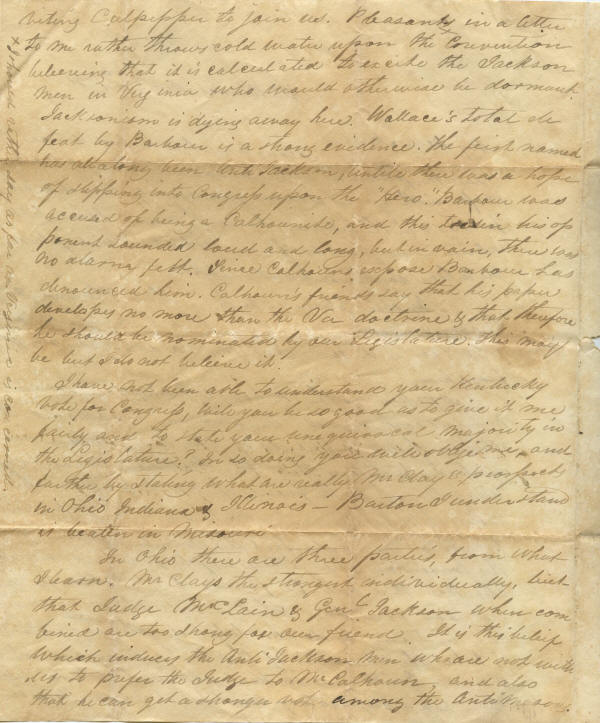 viting Culpepper to join us. Pleasants in a letter
to me rather throws cold water upon the Convention
believing that it is calculated to excite the Jackson
men in Virginia who would otherwise be dormant.
Jacksonism is dying away here. Wallace's total de
feat by Barbour is a strong evidence. The first named
has all along been Anti Jackson, untile there was a hope
of stepping into Congress upon the "Hero." Barbour was
accused of being a Calhounite, and this his op
ponent sounded loud and long, but in vain, there was
no alarm felt. Since Calhouns expose Barbour has
denounced him. Calhoun's friends say that his paper
developes no more than the Va doctrine & that therefore
he should be nominated by our Legislature. This may
be but I do not believe it.
I have not been able to understand your Kentucky
vote for Congress, will you be so good as to give it me
fairly and to state your unequivocal majority in
the Legislature? In so doing you will oblige me, and
farther by stating what are really Mr Clay's prospects
in Ohio Indiana & Illinois — Barton I understand
is beaten in Missouri
In Ohio there are three parties, from what
I learn. Mr Clays the strongest individually, but
that Judge McLain & Genl. Jackson when com
bined are too strong for our friend. It is this belief
which induces the Anti Jackson men who are not with
us to prefer the Judge to Mr Calhoun, and also
that he can get a stronger vote among the Anti Masons.
+ I should rather say as far as Virginia is concerned.